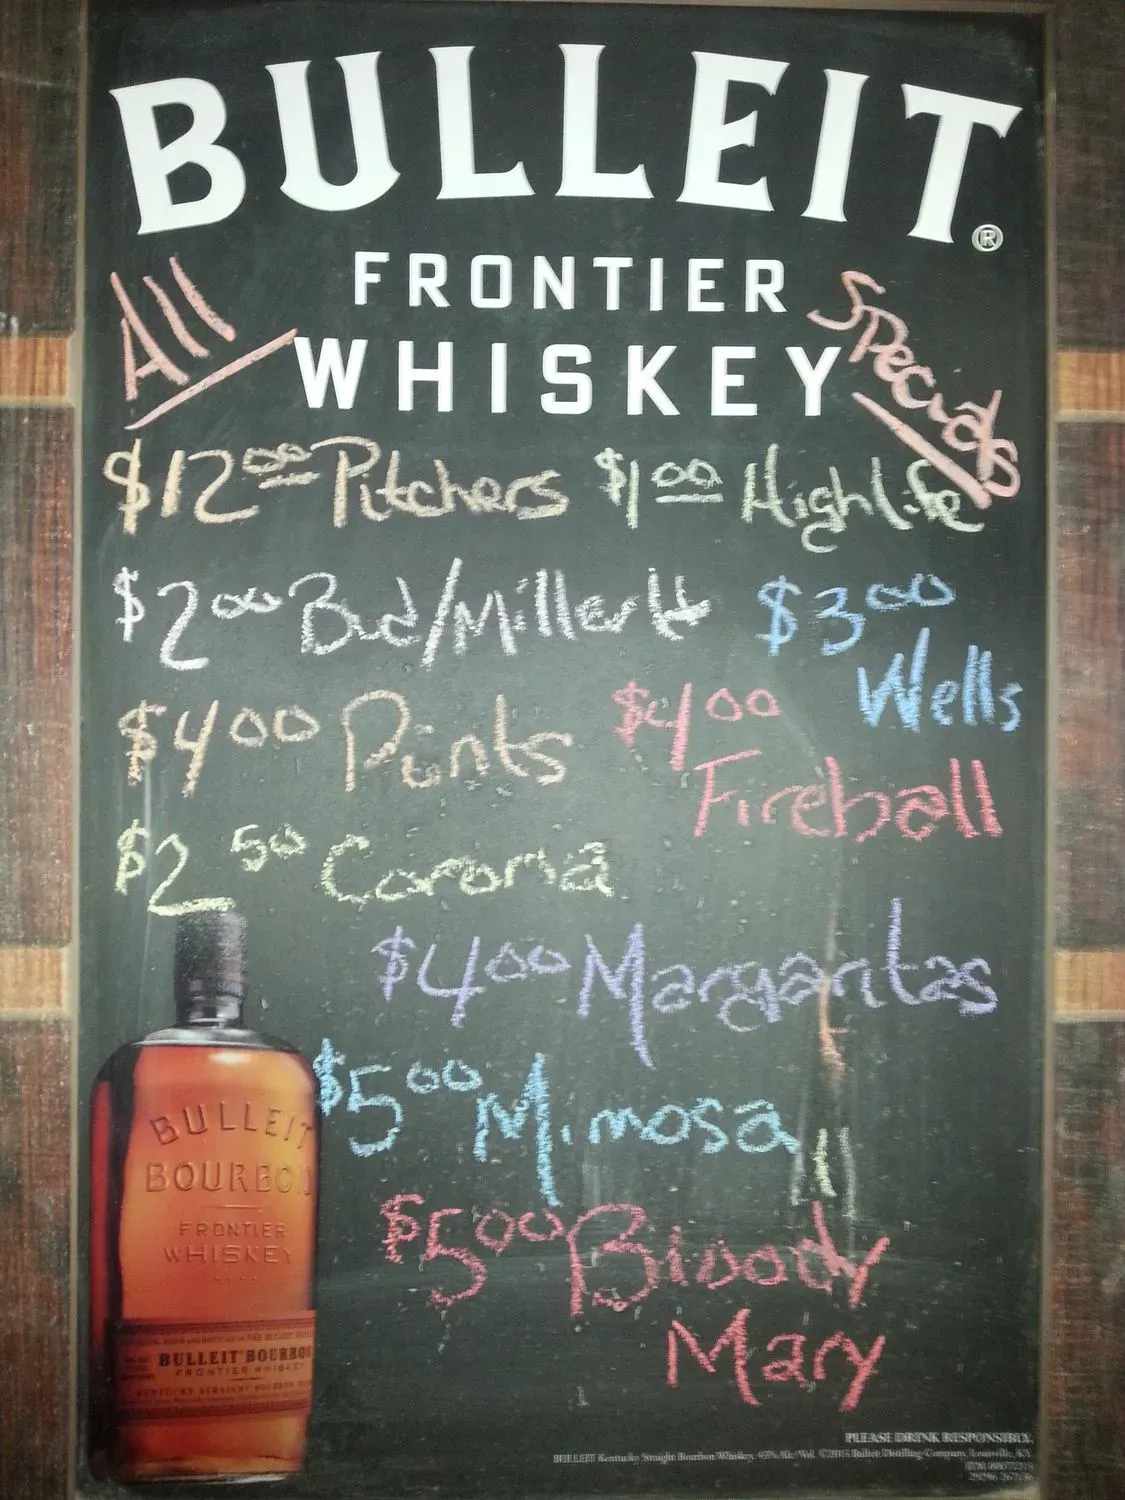 BULLEIT®
FRONTIER
WHISKEY
All Specials
$12.00 Pitchers $1.00 Highlife
$2.00 Bud/Miller Lt $3.00
Wells
$4.00 Points $4.00
Fireball
$2.50 Corona
$4.00 Margaritas
$5.00 Mimosa
$5.00 Bloody
Mary
BULLEIT
BOURBON
FRONTIER
WHISKEY
BULLEIT BOURBON
FRONTIER WHISKEY
KENTUCKY STRAIGHT BOURBON
PLEASE DRINK RESPONSIBLY.
BULLEIT Kentucky Straight Bourbon Whiskey, 45% Alc/Vol. ©2015 Bulleit Distilling Company, Louisville, KY